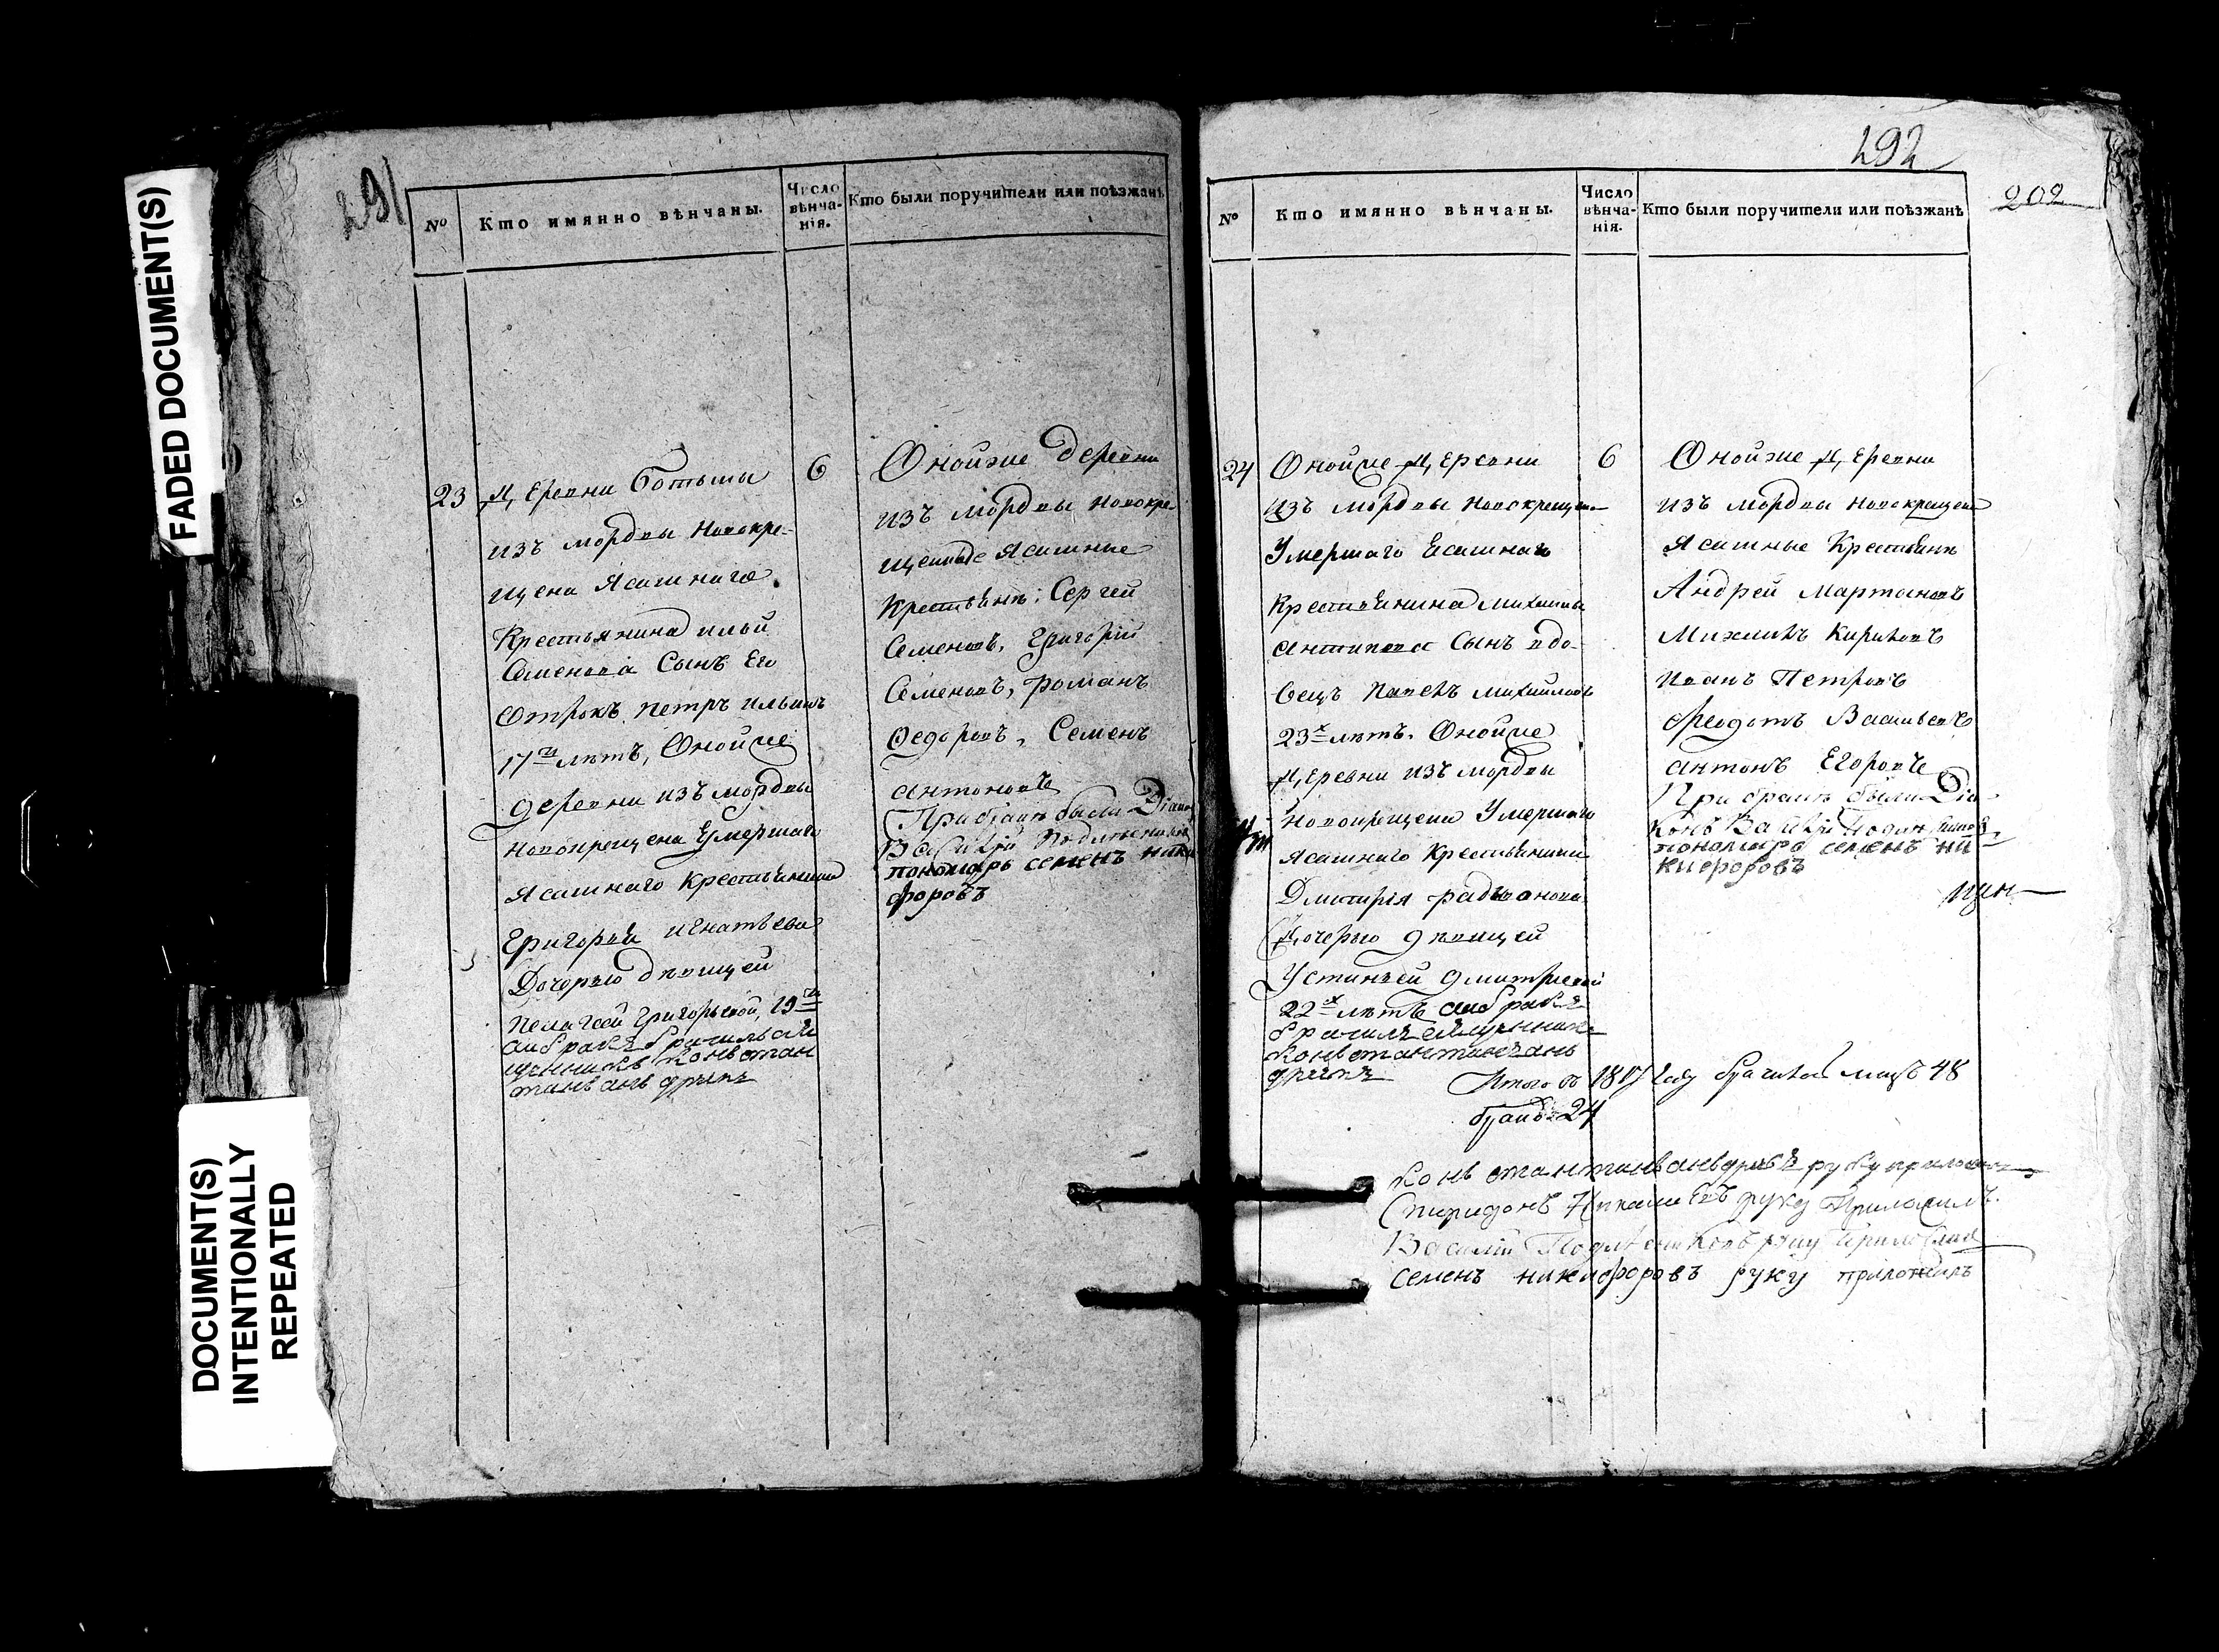 FADED DOCUMENT(S)
DOCUMENT(S)
INTENTIONALLY
REPEATED
291
№
Кто имянно вѣнчаны.
Число
вѣнча-
нія.
Кто были поручители или поѣзжанѣ
23
Деревни Ботьмы
изъ мордвы новокре-
щена Ясашнаго
Крестьянина ильи
Семенова Сынъ Его
Отрокъ Петръ Ильинъ
17ти лѣтъ, Оной же
деревни изъ мордвы
новокрещена Умершаго
Ясашнаго Крестьянина
Григорья игнатьева
Дочерью дѣвицей
Пелагеей Григорьевой, 19ти
Константинъ
6
Оной же деревни
изъ мордвы новокре-
щеные Ясашные
Крестьянѣ: Сергей
Семеновъ, Григорій
Семеновъ, романъ
Ѳедоровъ, Семенъ
антоновъ
При бракѣ были Діаконъ
Василій Подлесниковъ
пономарь семенъ ники
форовъ
292
202
№
Кто имянно вѣнчаны.
Число
вѣнча-
нія.
Кто были поручители или поѣзжанѣ
24
Оной же Деревни
изъ мордвы новокрещена
Умершаго Ясашнаго
Крестьянина михаила
антипова Сынъ вдо-
вецъ Павелъ михайловъ
23х лѣтъ. Оной же
Деревни изъ мордвы
новокрещена Умершаго
Ясашнаго Крестьянина
Дмитрія радионова
Дочерью дѣвицей
Устиньей дмитриевой
22х лѣтъ
6
Оной же Деревни
изъ мордвы новокрещены
Ясашные Крестьянѣ
Андрей Мартыновъ
Михаилъ Кириловъ
иванъ Петровъ
Феодотъ Васильевъ
антонъ Егоровъ
При бракѣ были Діа-
конъ Василій Подлесниковъ
пономарь семенъ ни
кифоровъ
Итого въ 1817 году 48
браковъ 24
руку приложилъ
Спиридонъ руку Приложилъ.
Василій Подлесниковъ руку приложилъ
семенъ никифоровъ руку приложилъ